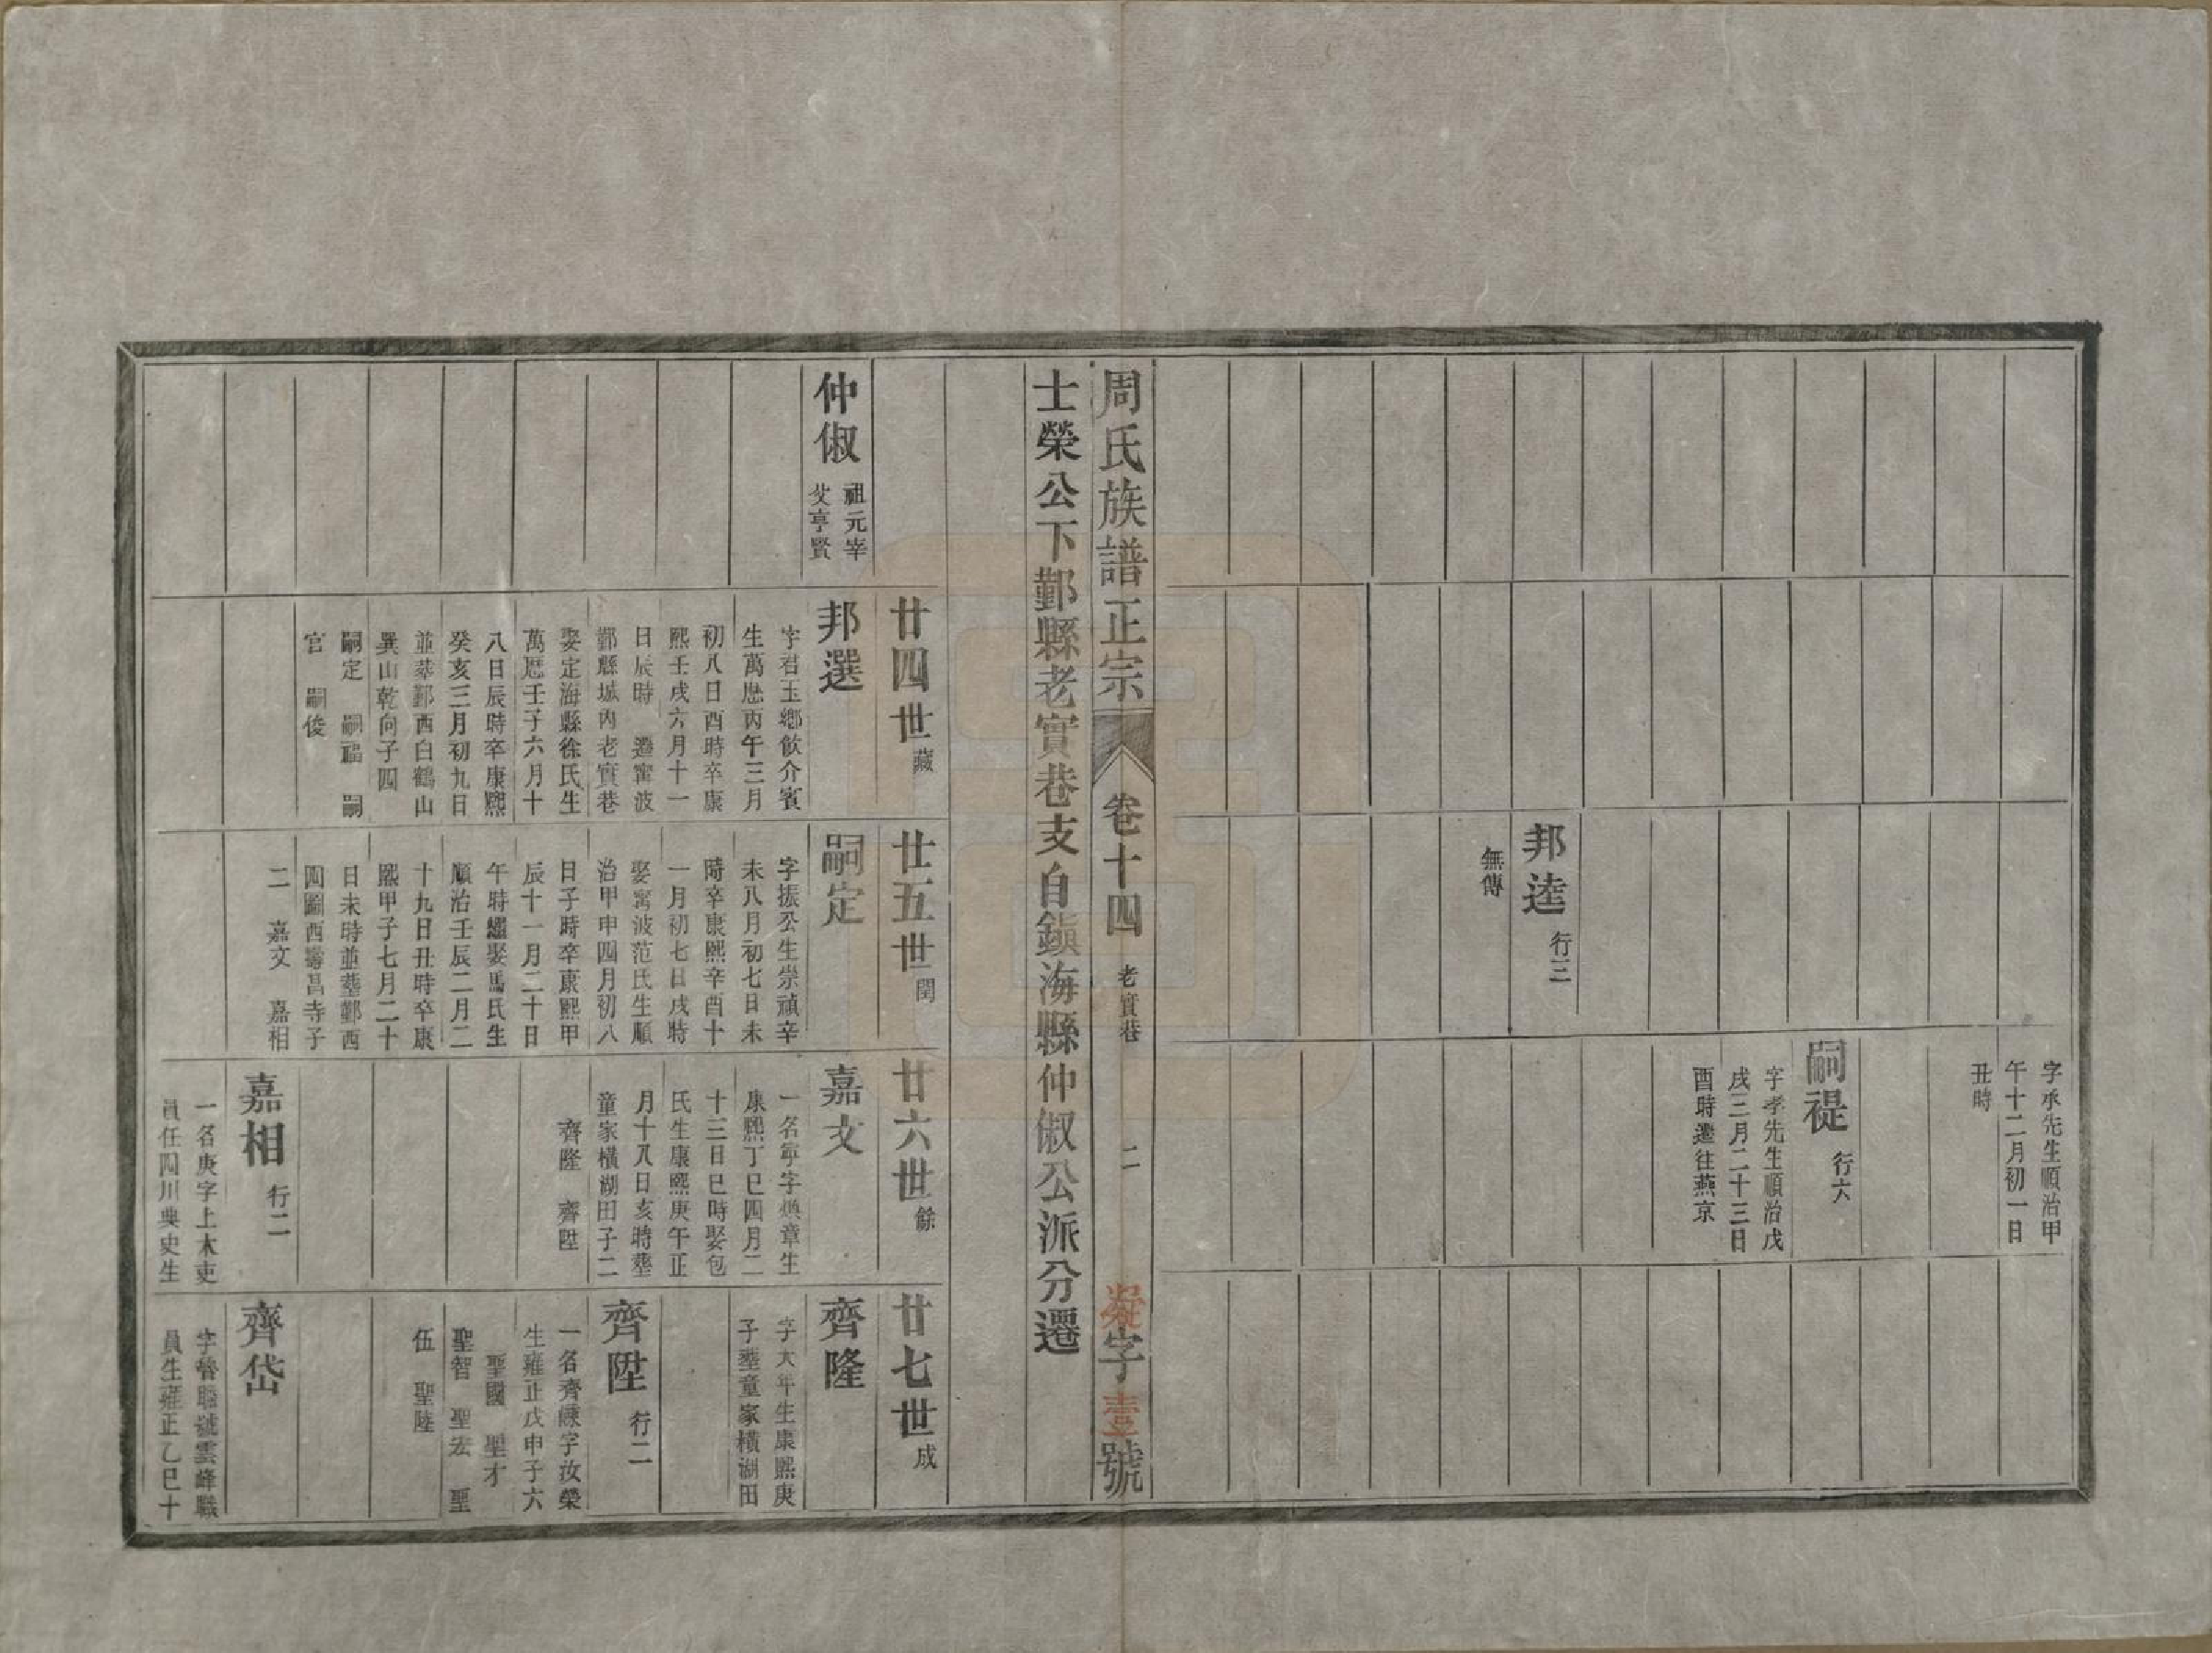 字承先生順治甲
午十二月初一日
丑時
嗣禔 行六
字孝先生順治戊
戌三月二十三日
酉時遷往燕京
邦逵 行三
無傳
周氏族譜正宗 卷十四 老實巷 二 凝字壹號
士榮公下鄞縣老實巷支自鎮海縣仲俶公派分遷
仲俶 祖元宰
父亨賢
廿四世 藏
邦選
字君玉鄉飲介賓
生萬厯丙午三月
初八日酉時卒康
熙壬戌六月十一
日辰時 遷甯波
鄞縣城內老實巷
娶定海縣徐氏生
萬厯壬子六月十
八日辰時卒康熙
癸亥三月初九日
並葬鄞西白鶴山
巽山乾向子四
嗣定 嗣福 嗣
官 嗣俊
廿五世 閏
嗣定
字振公生崇禎辛
未八月初七日未
時卒康熙辛酉十
一月初七日戌時
娶甯波范氏生順
治甲申四月初八
日子時卒康熙甲
辰十一月二十日
午時繼娶馬氏生
順治壬辰二月二
十九日丑時卒康
熙甲子七月二十
日未時並葬鄞西
四圖西壽昌寺子
二 嘉文 嘉相
廿六世 餘
嘉文
一名寧字煥章生
康熙丁巳四月二
十三日巳時娶包
氏生康熙庚午正
月十八日亥時塟
童家橫湖田子二
齊隆 齊陞
嘉相 行二
一名庚字上木吏
員任四川典史生
廿七世 成
齊隆
字大年生康熙庚
子塟童家橫湖田
齊陞 行二
一名齊諫字汝榮
生雍正戊申子六
聖國 聖才
聖智 聖宏 聖
伍 聖陸
齊岱
字魯瞻號雲峰縣
員生雍正乙巳十